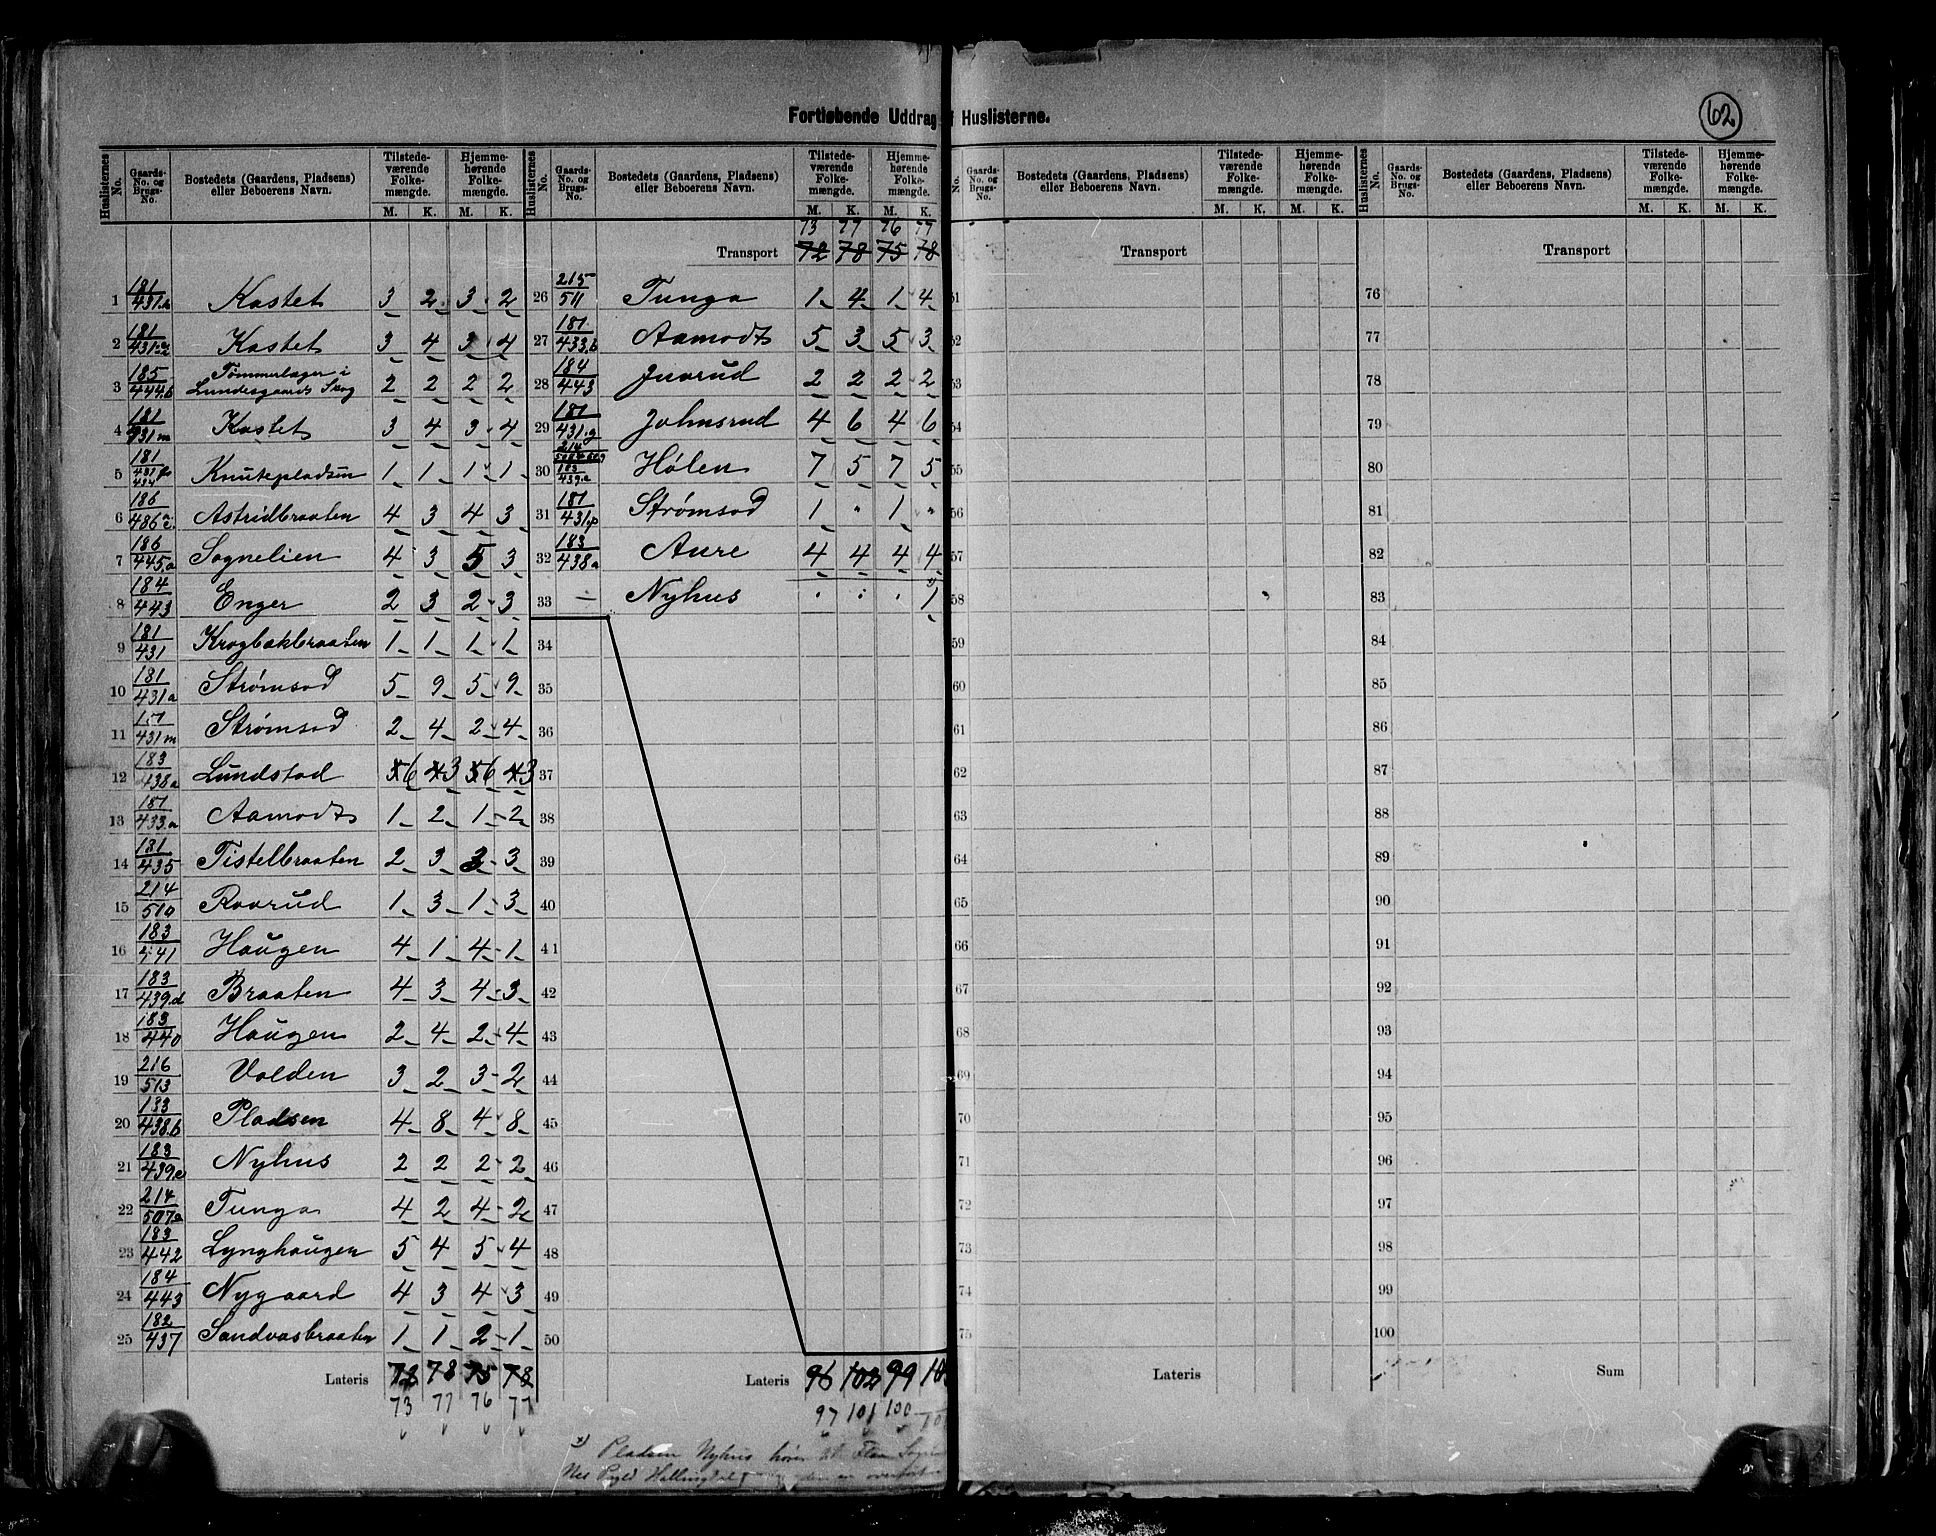 Fortløbende Uddrag Huslisterne.
62
Huslisternes No. | Gaards-No. og Brugs-No. | Bostedets (Gaardens, Pladsens) eller Beboerens Navn. | Tilstedeværende Folkemængde. M. K. | Hjemmehørende Folkemængde. M. K.
1 181/431.b Kastet 3 2 3 2
2 181/431 Kastet 3 4 3 4
3 185/444.b Tømmerlager i Lundesgaards Skog 2 2 2 2
4 181/431m Kastet 3 4 3 4
5 181/431 434 Knutepladsen 1 1 1 1
6 186/486 Astridbraaten 4 3 4 3
7 186/445a Sognelien 4 3 5 3
8 184/443 Enger 2 3 2 3
9 181/431 Krogbækbraaten 1 1 1 1
10 181/431a Strømsod 5 9 5 9
11 181/431m Strømsod 2 4 2 4
12 183/438a Lundstad 5 6 4 3 5 6 4 3
13 181/433.a Aamodt 1 2 1 2
14 181/435 Tistelbraaten 2 3 3 3
15 214/510 Roarud 1 3 1 3
16 183/441 Haugen 4 1 4 1
17 183/439.d Braaten 4 3 4 3
18 183/440 Haugen 2 4 2 4
19 216/513 Volden 3 2 3 2
20 183/438.b Pladsen 4 8 4 8
21 183/439.c Nyhus 2 2 2 2
22 214/507a Tunga 4 2 4 2
23 183/442 Lynghaugen 5 4 5 4
24 184/443 Nygaard 4 3 4 3
25 182/437 Sandvasbraaten 1 1 2 1
Lateris 72 78 75 78
73 77 76 77
Huslisternes No. | Gaards-No. og Brugs-No. | Bostedets (Gaardens, Pladsens) eller Beboerens Navn. | Tilstedeværende Folkemængde. M. K. | Hjemmehørende Folkemængde. M. K.
73 77 76 77
Transport 72 78 75 78
26 215/511 Tunga 1 4 1 4
27 181/433.b Aamodt 5 3 5 3
28 184/443 Juvrud 2 2 2 2
29 181/431.g Johnsrud 4 6 4 6
30 214 183/439.a Hølen 7 5 7 5
31 181/431.p Strømsod 1 " 1 "
32 183/438a Aure 4 4 4 4
33 — Nyhus . . . 1
34
35
36
37
38
39
40
41
42
43
44
45
46
47
48
49
50
Lateris 96 102 99
97 101 100
x) Pladsen Nyhus hører til Flaa
Nes Pgld Hallingdal
No. | Gaards-No. og Brugs-No. | Bostedets (Gaardens, Pladsens) eller Beboerens Navn. | Tilstedeværende Folkemængde. M. K. | Hjemmehørende Folkemængde. M. K.
Transport
51
52
53
54
55
56
57
58
59
60
61
62
63
64
65
66
67
68
69
70
71
72
73
74
75
Lateris
Huslisternes No. | Gaards-No. og Brugs-No. | Bostedets (Gaardens, Pladsens) eller Beboerens Navn. | Tilstedeværende Folkemængde. M. K. | Hjemmehørende Folkemængde. M. K.
Transport
76
77
78
79
80
81
82
83
84
85
86
87
88
89
90
91
92
93
94
95
96
97
98
99
100
Sum